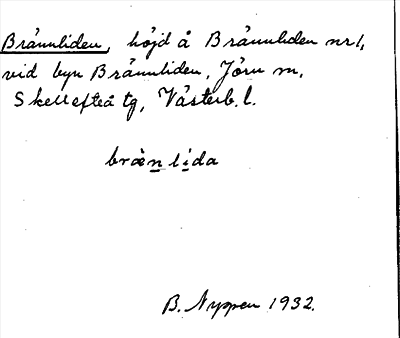 Brännliden, höjd å Brännliden nr 1,
vid byn Brännliden, Jörn m,
Skellefteå tg, Västerb. l.
bræ̀nlida
B. Nyppen 1932.